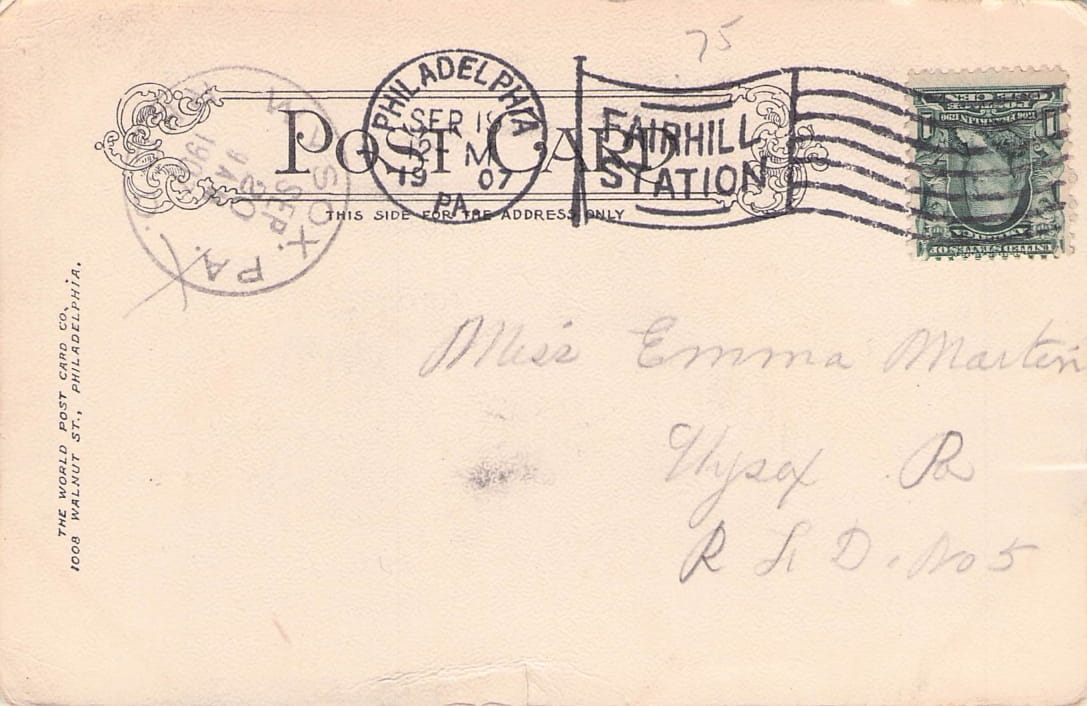 75
PHILADELPHIA, PA.
SEP 19
12- M
1907
FAIRHILL
STATION
POST CARD
THIS SIDE FOR THE ADDRESS ONLY
WYSOX PA.
SEP.
20
9 AM
THE WORLD POST CARD CO.,
1008 WALNUT ST., PHILADELPHIA.
Miss Emma Martin
Wysox Pa
R F D. No 5